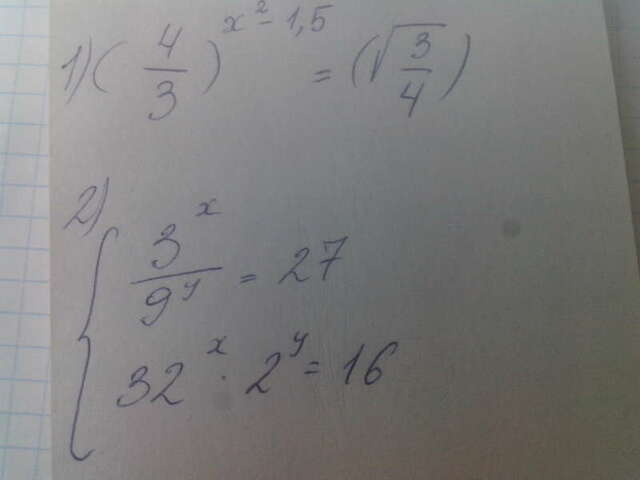 1) (4/3)^(x² - 1,5) = (√(3/4))
2)
{ 3^x / 9^y = 27
32^x · 2^y = 16